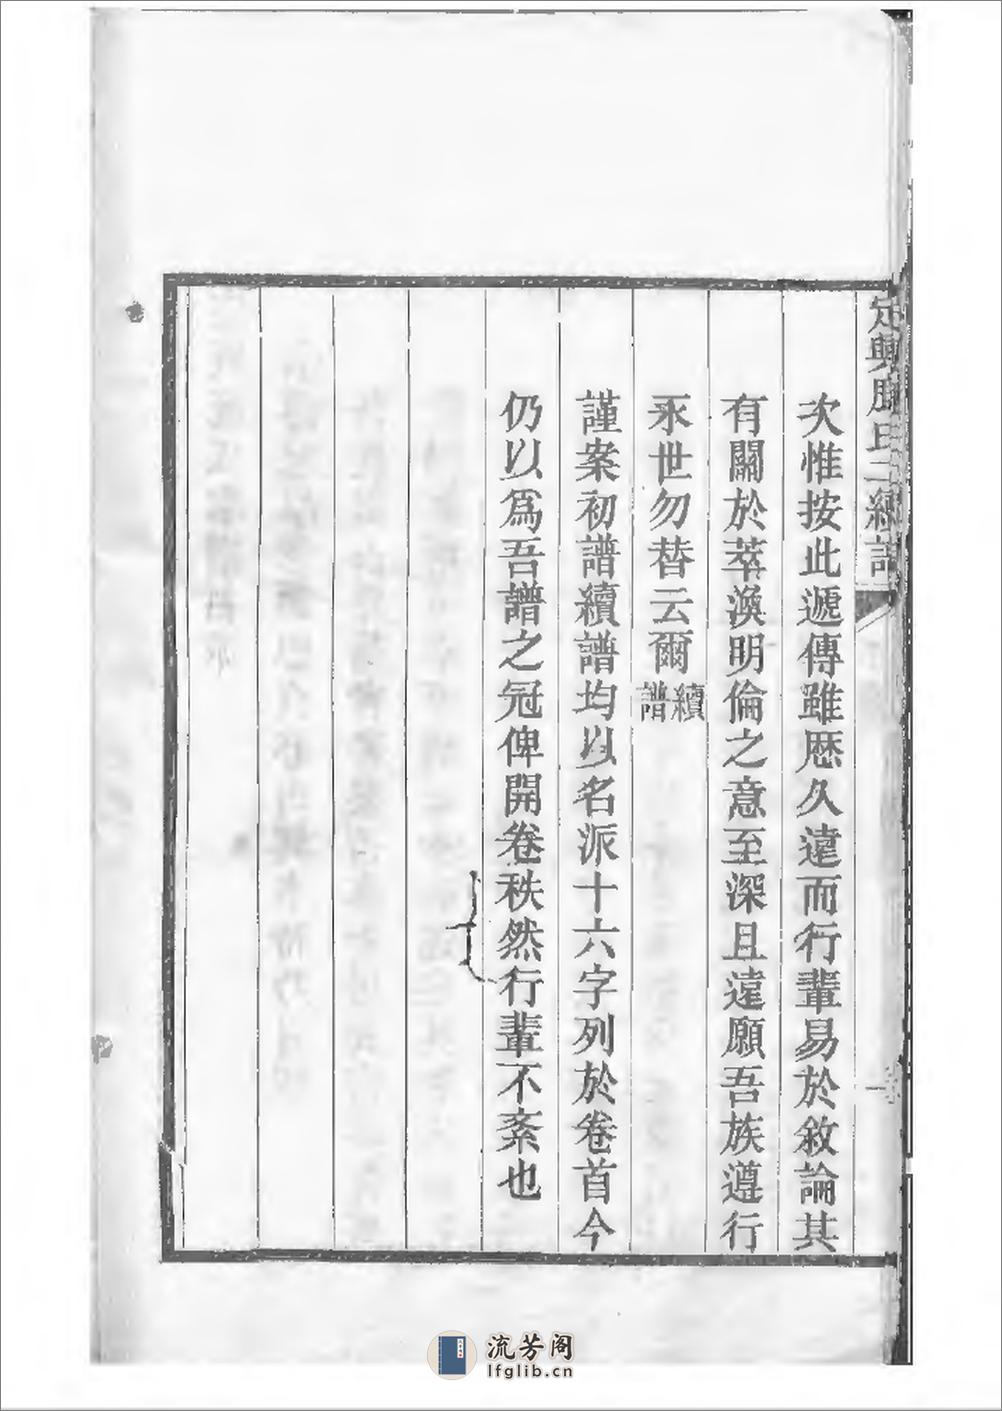 次惟按此遞傳雖歷久遠而行輩易於敘論其
有關於萃渙明倫之意至深且遠願吾族遵行
永世勿替云爾續譜
謹案初譜續譜均以名派十六字列於卷首今
仍以爲吾譜之冠俾開卷秩然行輩不紊也
流芳阁
lfglib.cn